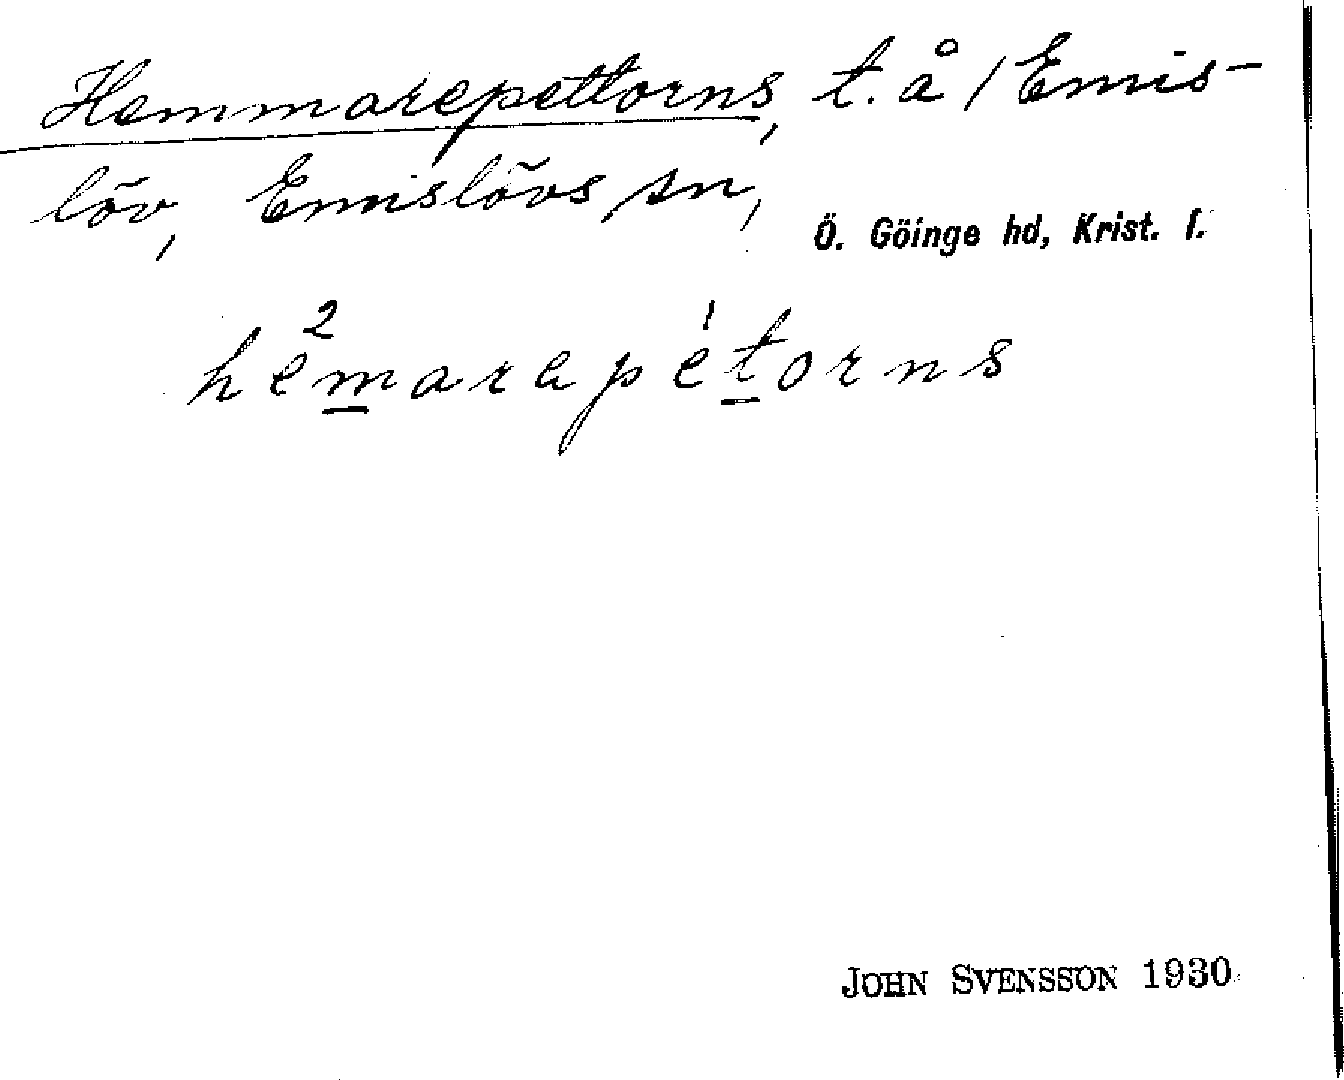 Hemmarepettorns, t. å / Emis-
löv, Emislövs sn,
Ö. Göinge hd, Krist. l.
he²m̲arapé¹t̲orns
JOHN SVENSSON 1930